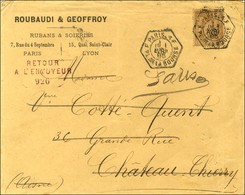 ROUBAUDI & GEOFFROY
RUBANS & SOIERIES
7, Rue du 4 Septembre 15, Quai Saint-Clair
PARIS LYON
RETOUR
A L'ENVOYEUR
926
PARIS
Paris
Cotté-Quint
36 Grande Rue
Château Thierry
(Aisne)